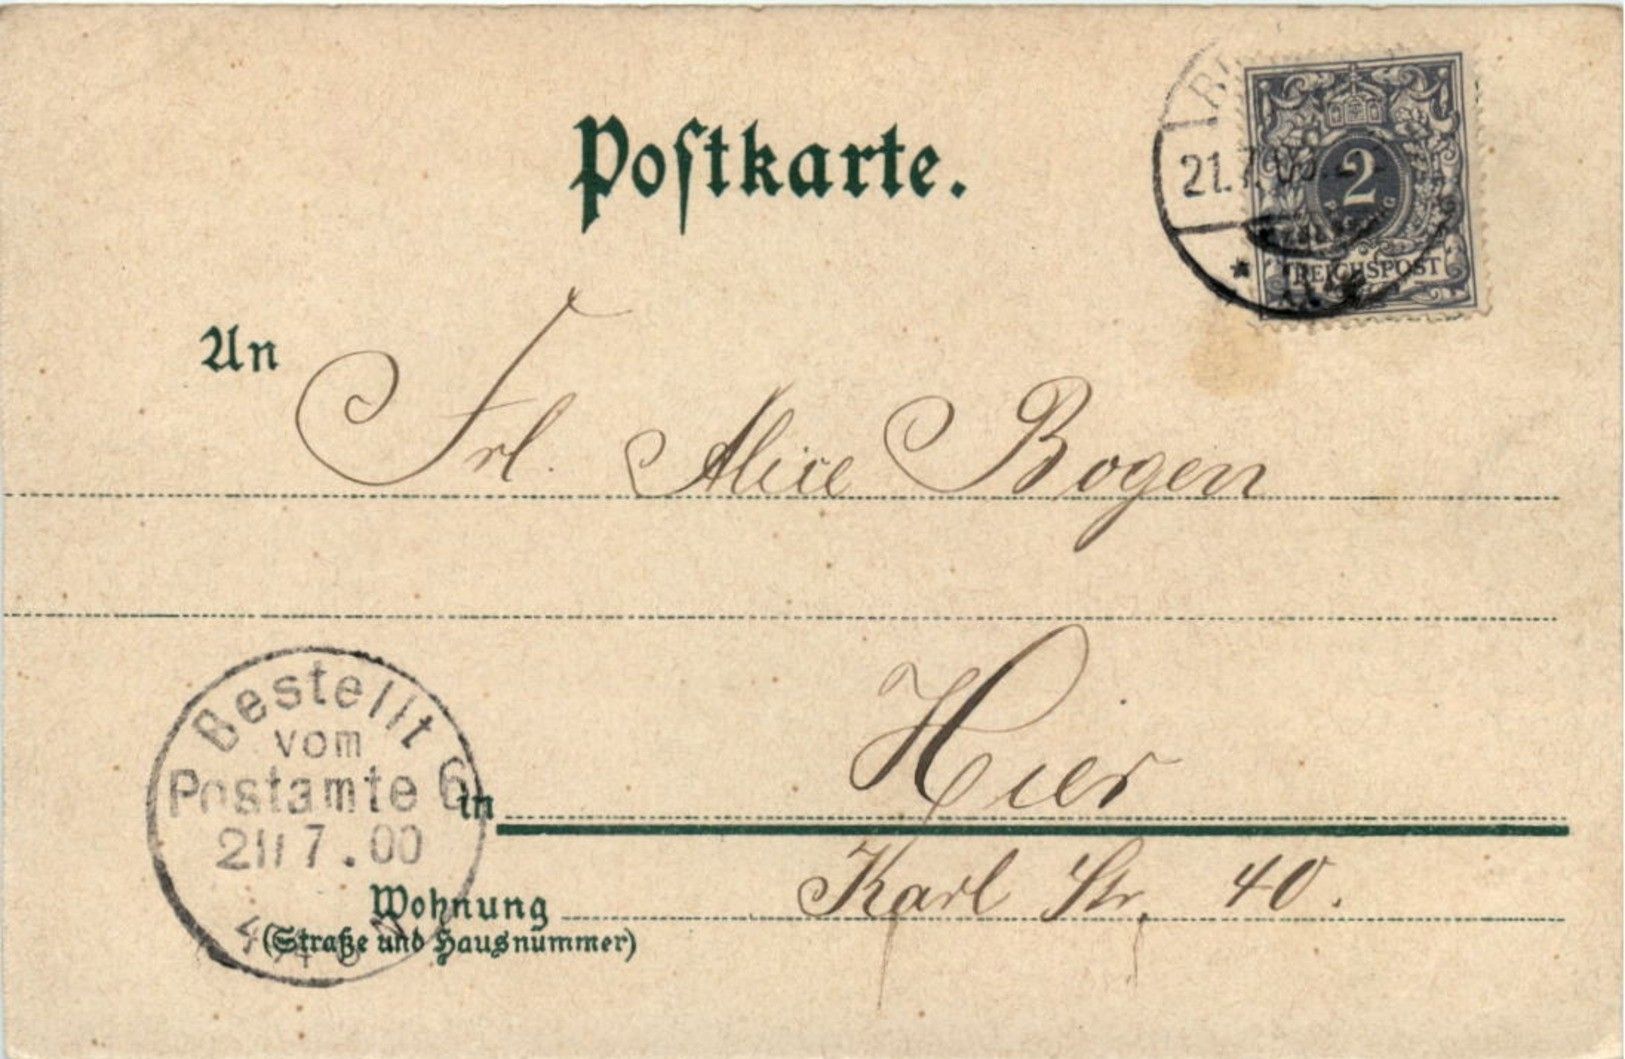 Postkarte.
21.7.00.
2
REICHSPOST
An
Frl. Alice Bogen
Bestellt
vom
Postamte 6
21/7.00
in Hier
Wohnung Karl Str. 40.
(Straße und Hausnummer)